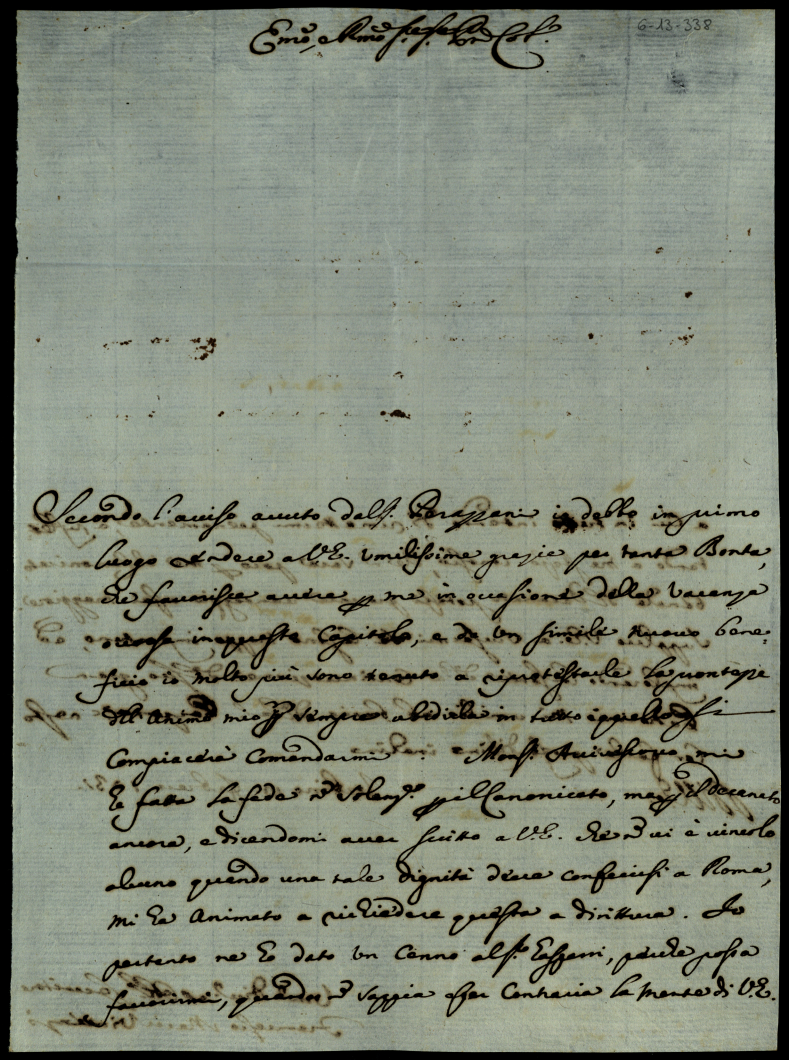 6-13-338
Emo, e Rmo Sig. Sig. Pron Col.
Secondo l'aviso avuto dal S. io debbo in primo
luogo rendere a V.E. umilissime grazie per tanta Bontà,
che favorisce avere p me in occasione della vacanza
occorsa in questo Capitolo, e di un simile nuovo bene=
ficio io molto più sono tenuto a riprotestarle la prontezze
dell'animo mio p sempre obedirla in tutto
Compiacerà Comandarmi. Monsr. mi
ha fatta la fede p il Canonicato, ma p il decanato
ancora, e dicendomi aver scritto a V.E. che n vi è vincolo
alcuno quando una tale dignità deve conferirsi a Roma,
mi ha animato a richiedere questa a dirittura. Io
pertanto ne ho dato un cenno al Sr. perche possa
favorirmi, quando n sappia esser contraria la mente di V.E.